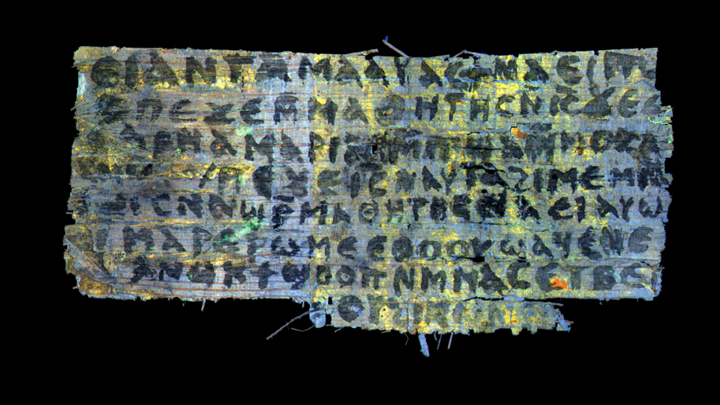 ⲉⲓ ⲁⲛ ⲧⲁⲙⲁⲁⲩ ⲁⲥϯ ⲛⲁⲉⲓ ⲡ
ⲡⲉϫⲉ ⲙⲙⲁⲑⲏⲧⲏⲥ ⲛⲓⲥ ϫⲉ ⲥ
ⲁⲣⲛⲁ ⲙⲁⲣⲓⲁⲙ ⲙⲡϣⲁ ⲙⲙⲟⲥ ⲁ
ⲡⲉϫⲉ ⲓⲥ ⲛⲁⲩ ⲧⲁϩⲓⲙⲉ ⲙⲛ
ⲥⲛⲁϣⲣⲙⲁⲑⲏⲧⲏⲥ ⲛⲁⲉⲓ ⲁⲩⲱ
ⲓ ⲙⲁⲣⲉⲣⲱⲙⲉ ⲉⲑⲟⲟⲩ ϣⲁϥⲉ ⲛⲉ
ⲁⲛⲟⲕ ϯϣⲟⲟⲡ ⲛⲙⲙⲁⲥ ⲉⲧⲃⲉ
ⲟⲩϩⲓⲕⲱⲛ